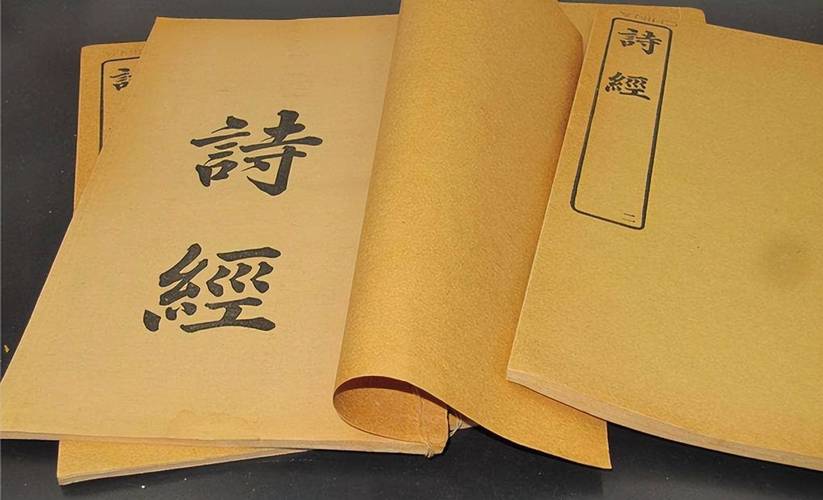 詩
經
詩
經
二
詩
CHINA